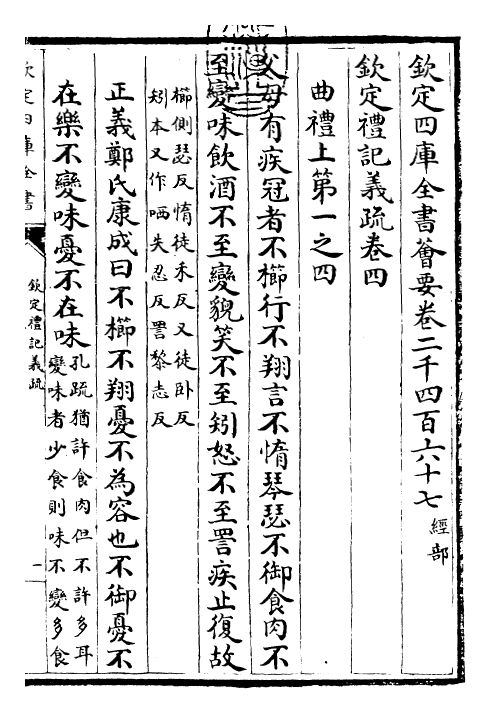 欽定四庫全書薈要卷二千四百六十七 經部
欽定禮記義疏卷四
曲禮上第一之四
父母有疾冠者不櫛行不翔言不惰琴瑟不御食肉不
至變味飲酒不至變貌笑不至矧怒不至詈疾止復故
櫛側瑟反惰徒禾反又徒卧反
矧本又作哂失忍反詈黎志反
正義鄭氏康成曰不櫛不翔憂不為容也不御憂不
在樂不變味憂不在味
孔疏猶許食肉但不許多耳
變味者少食則味不變多食
欽定四庫全書
欽定禮記義疏
一